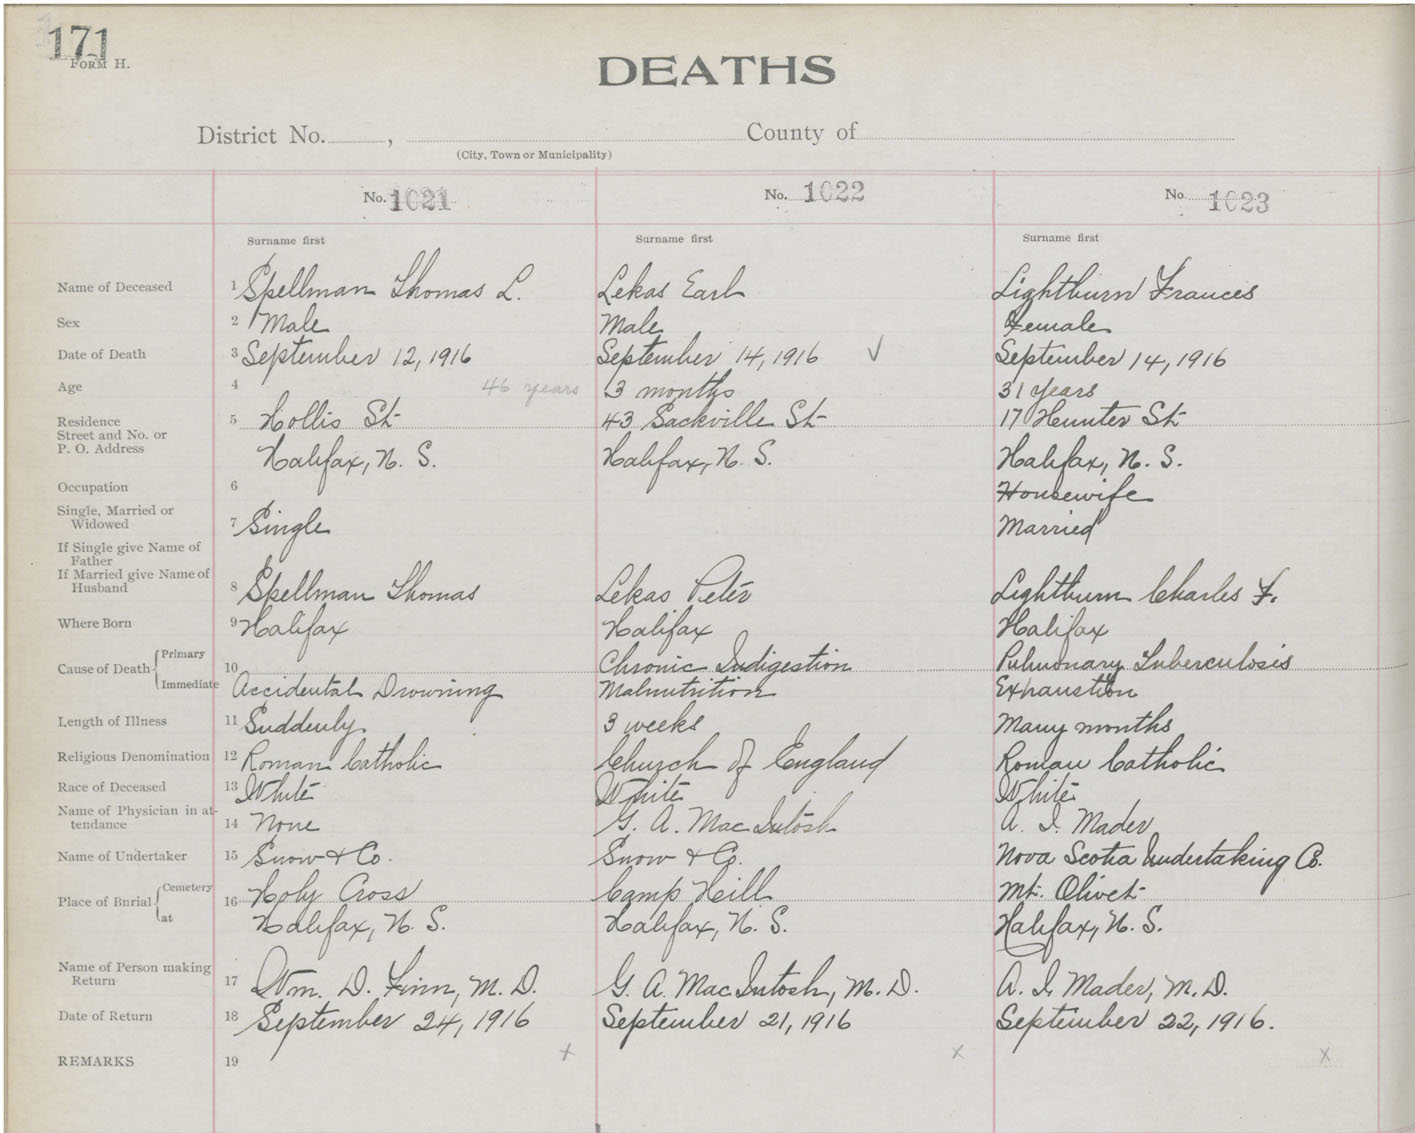 171
FORM H.
DEATHS
District No. , County of
(City, Town or Municipality)
No. 1021 No. 1022 No. 1023
Surname first Surname first Surname first
Name of Deceased 1 Spellman Thomas L. Lekas Earl Lightburn Frances
Sex 2 Male Male Female
Date of Death 3 September 12, 1916 September 14, 1916 √ September 14, 1916
Age 4 46 years 3 months 31 years
Residence 5 Hollis St 43 Sackville St 17 Hunter St
Street and No. or
P. O. Address Halifax, N. S. Halifax, N. S. Halifax, N. S.
Occupation 6 Housewife
Single, Married or
Widowed 7 Single Married
If Single give Name of
Father
If Married give Name of
Husband 8 Spellman Thomas Lekas Peter Lightburn Charles F.
Where Born 9 Halifax Halifax Halifax
Cause of Death Primary 10 Chronic Indigestion Pulmonary Tuberculosis
Immediate Accidental Drowning Malnutrition Exhaustion
Length of Illness 11 Suddenly. 3 weeks Many months
Religious Denomination 12 Roman Catholic Church of England Roman Catholic
Race of Deceased 13 White White White
Name of Physician in at-
tendance 14 None G. A. MacIntosh A. I. Mader
Name of Undertaker 15 Snow & Co. Snow & Co. Nova Scotia Undertaking Co.
Place of Burial Cemetery 16 Holy Cross Camp Hill Mt. Olivet
at Halifax, N. S. Halifax, N. S. Halifax, N. S.
Name of Person making
Return 17 Wm. D. Finn, M. D. G. A. MacIntosh, M. D. A. I. Mader, M. D.
Date of Return 18 September 24, 1916 September 21, 1916 September 22, 1916.
REMARKS 19 x x x